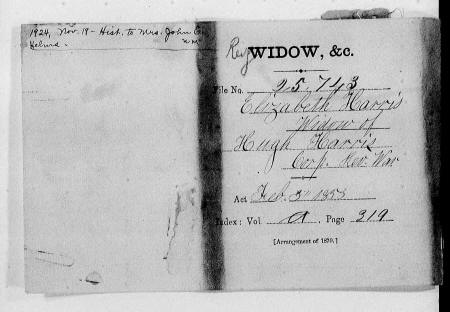 1924, Nov. 19 - Hist. to Mrs. John
Rej WIDOW, &c.
File No. 25,743
Elizabeth Harris
Widow of
Hugh Harris
Corp. Rev. War
Act Feb. 3d 1853
Index: Vol A, Page 319
[Arrangement of 1870.]